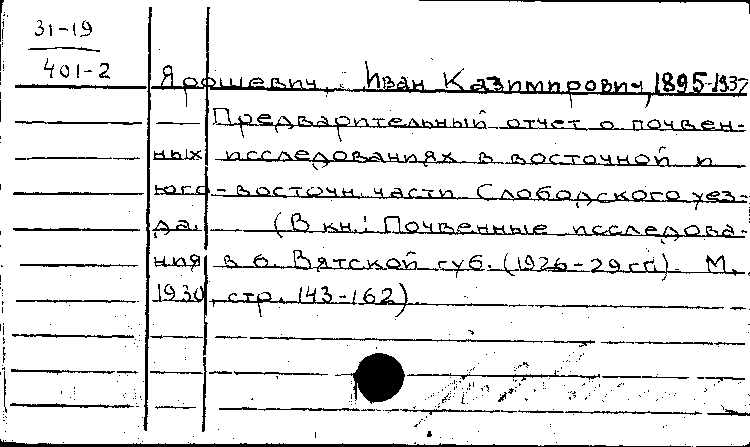 31-19
401-2
Ярошевич, Иван Казимирович, 1895-1937
Предварительный отчет о почвен-
ных исследованиях в восточной и
юго-восточн. части Слободского уез-
да. (В кн.: Почвенные исследова-
ния в б. Вятской губ. (1926-29 гг.). М.,
1930, стр. 143-162)